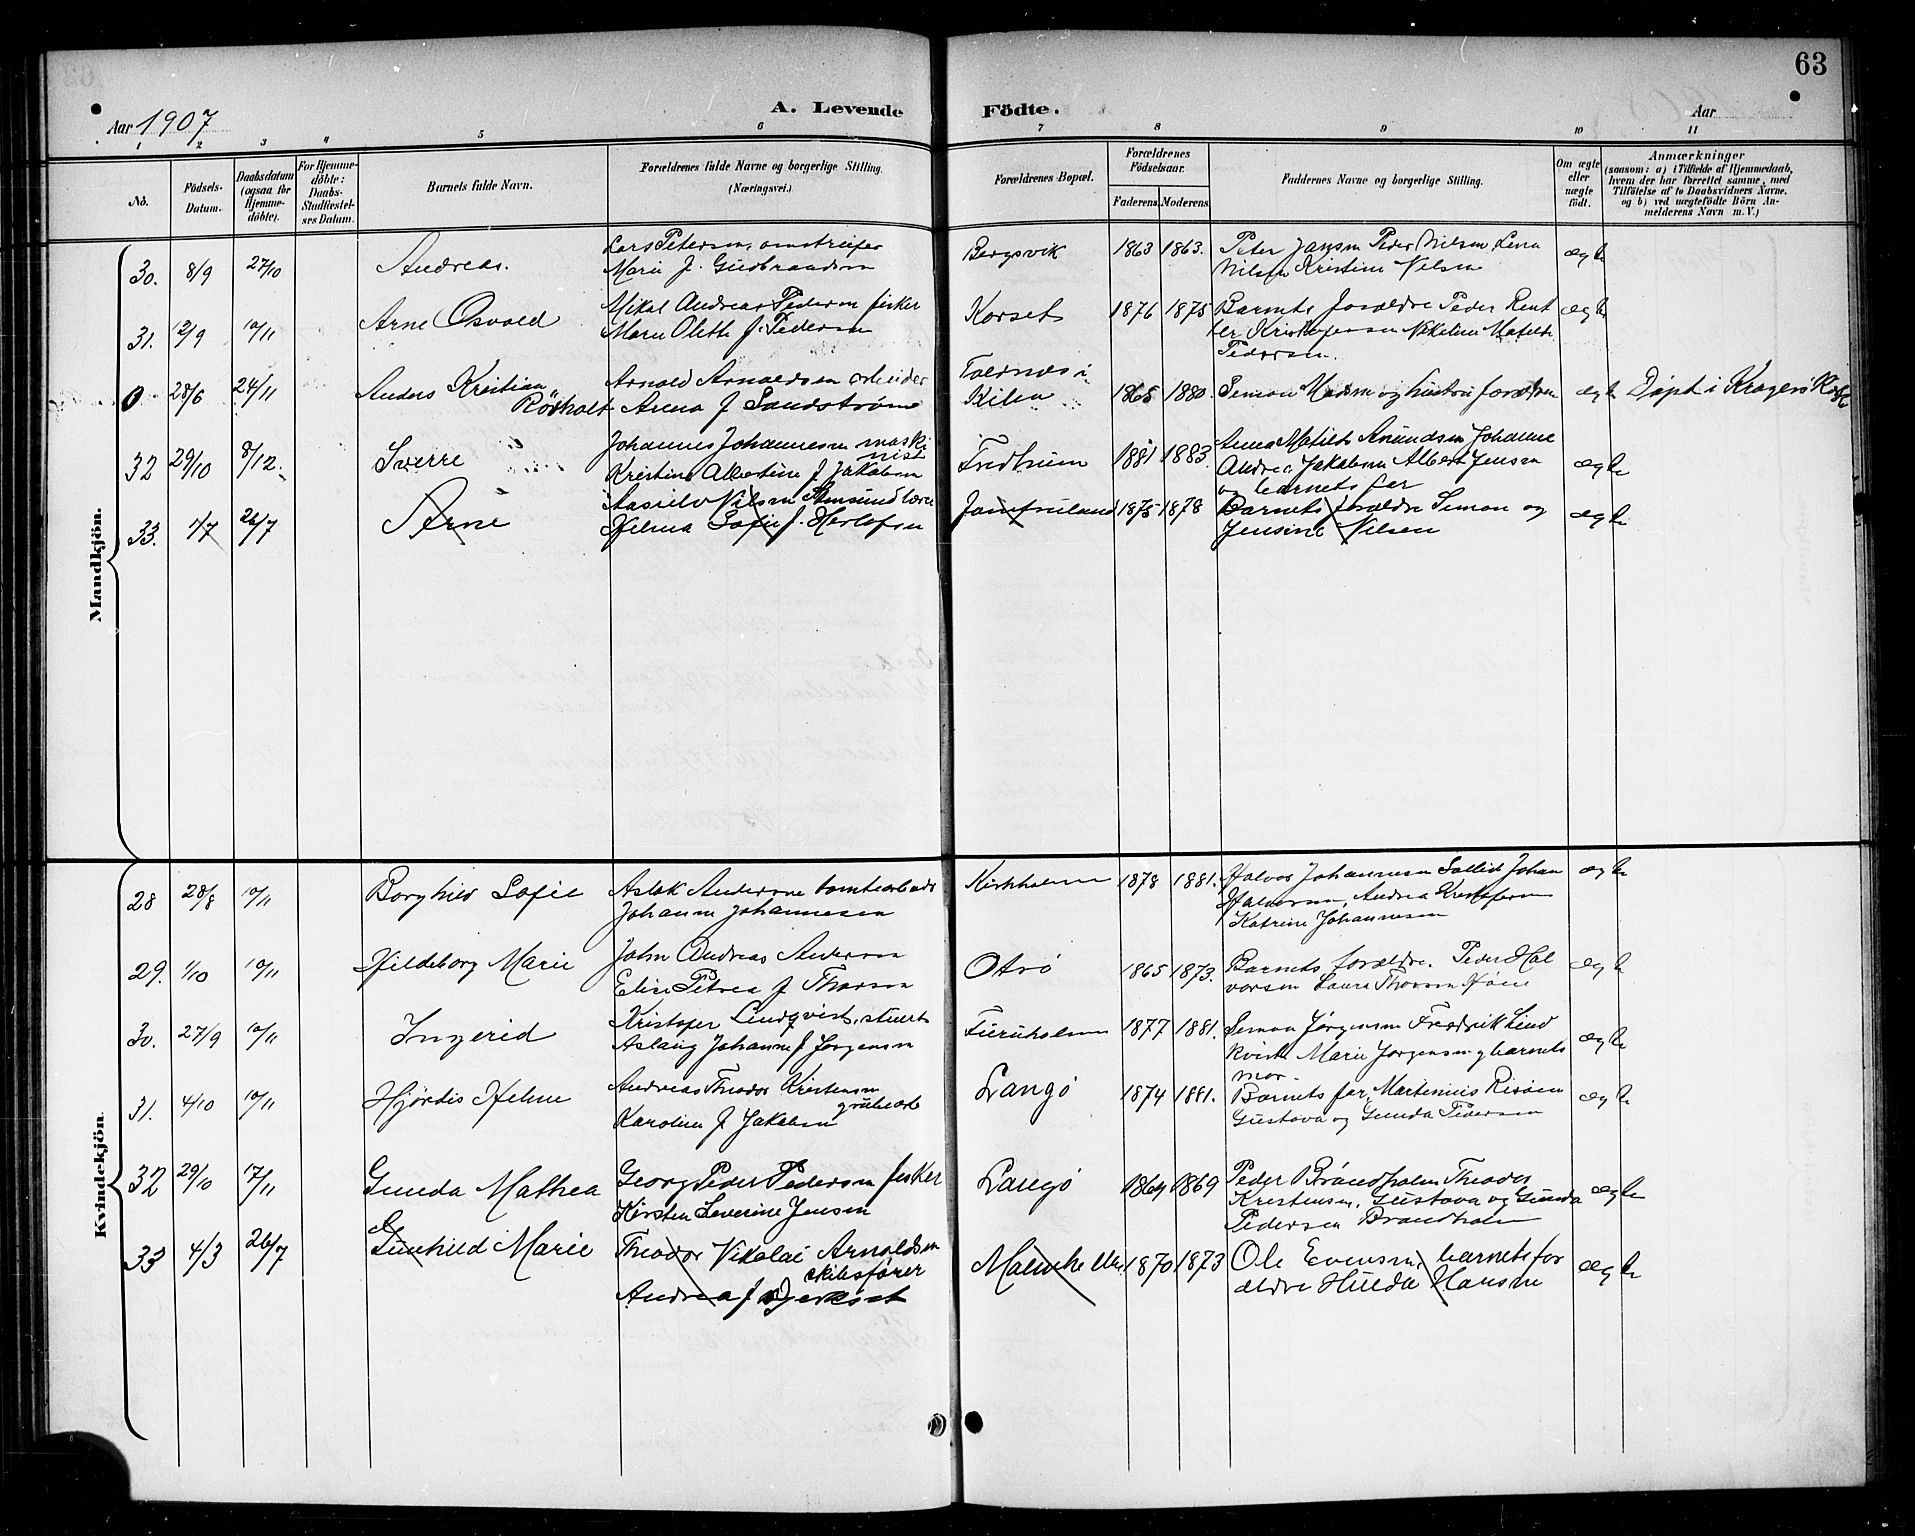 63
Aar 1907
A. Levende Födte.
Aar
1 2 3 4 5 6 7 8 9 10 11
No.
Födsels-Datum.
Daabsdatum (ogsaa for Hjemme-döbte).
For Hjemme-döbte: Daabs-Stadfæstel-ses Datum.
Barnets fulde Navn.
Forældrenes fulde Navne og borgerlige Stilling.
(Næringsvei.)
Forældrenes Bopæl.
Forældrenes Födselsaar.
Faderens. Moderens.
Faddernes Navne og borgerlige Stilling.
Om ægte eller uægte födt.
Anmærkninger
(saasom: a) i Tilfælde af Hjemmedaab, hvem der har forrettet samme, med Tilföielse af to Daabsvidners Navne, og b) ved uægtefödte Börn An-melderens Navn m. V.)
Mandkjön.
30. 8/9 27/10 Andreas. Lars Petersen, Marie J. Gudbraandsen Bergsvik 1863 1863. Peter Jansen Peder Nilsen Lena Nilsen Kristine Nilsen ægte
31. 12/9 10/11 Arne Osvald Mikal Andreas Pedersen fisker Maren Oleth f. Pedersen Korset 1876 1875 Barnets forældre Peder Kristofersen Nikoline Matilde Pedersen. ægte
0 28/6 24/11 Anders Kristian Rödholt Arnold Arnoldsen arbeider Anna f Sandstrøm i Kilen 1865 1880. Simon Madsen og hustru forældrene ægte Døpt i Kragerø Kirke
32 29/10 8/12. Sverre Johannes Johannesen maskinist Kristine Albertine f Jakobsen 1881 1883. Anna Matilde Amundsen Johanne Andrea Jakobsen Albert Jensen og barnets far ægte
33. 1/7 26/7 Arne Nilsen Hilma Sofie f. Herlofsen Jomfruland 1875 1878 Barnets forældre Simon og Jensine Nilsen ægte
Kvindekjön.
28 28/8 10/11 Borghild Sofie Aslak Andersen tomtearbeid Johanne Johannesen Kirkholmen 1878 1881. Halvor Johannesen Johan Halvorsen, Andrea Kristofersen Katrine Johannesen ægte
29. 1/10 10/11 Hildeborg Marie John Andreas Andersen Elise Petrea f Thorsen Otrø 1865 1873. Barnets forældre. Peder Halvorsen Laura Thorsen ægte
30. 27/9 10/11 Ingerid Kristofer Lindqvist, stuert Aslaug Johanne f Jørgensen Furuholmen 1877 1881. Simon Jørgensen Fredrik Lindkvist Marie Jørgensen og barnets mor. ægte
31. 4/10 10/11 Hjördis Helene Andreas Theodor Kristensen grubearb Karoline f Jakobsen Langø 1874 1881. Barnets far, Martenius Risøen Gustava og Gunda Pedersen ægte
32 29/10 17/11 Gunda Mathea Georg Peder Pedersen fisker Kirsten Severine Jensen Langø 1864 1869 Peder Brándholm Theodor Kristensen, Gustava og Gunda Pedersen Brandholm ægte
33 4/3 26/7 Gunhild Marie Theodor Nikolai Arnoldsen skibsfører Andrea f 1870 1873 Ole Evensen, barnets forældre Hulda Hansen ægte